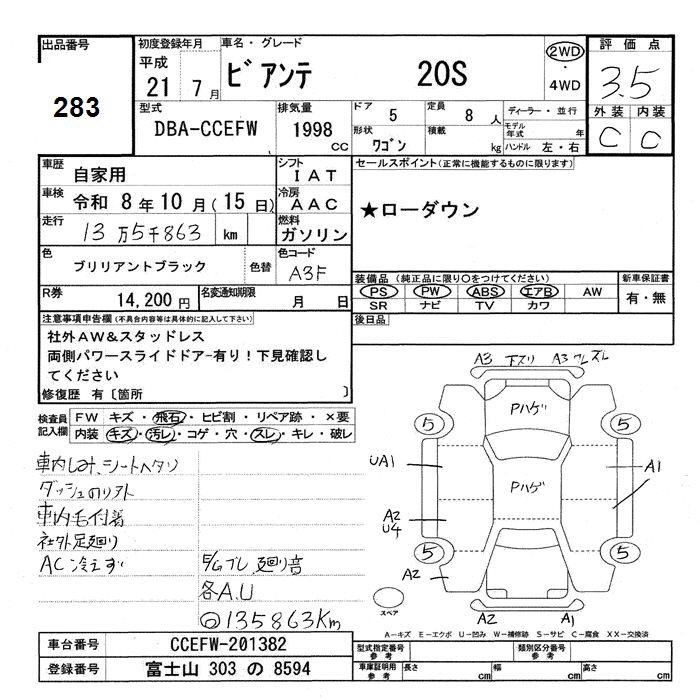 出品番号
283
初度登録年月
平成
21 7月
車名・グレード
ビアンテ 20S
2WD
・
4WD
評価点
3.5
外装 内装
C C
型式
DBA-CCEFW
排気量
1998
CC
ドア 5
定員 8 人
形状 ワゴン
積載 kg
ディーラー・並行
モデル年式 年
ハンドル 左・右
車歴
自家用
車検
令和 8年 10月(15日)
走行
13万5千863 km
色
ブリリアントブラック
色替
シフト
IAT
冷房
AAC
燃料
ガソリン
色コード
A3F
セールスポイント(正常に機能するものに限ります)
★ローダウン
R券
14,200円
名変通知期限
月 日
装備品(純正品に限り○をつけてください)
PS PW ABS エアB AW
SR ナビ TV カワ
新車保証書
有・無
後日品
注意事項申告欄(不具合内容等は具体的に記入して下さい)
社外AW&スタッドレス
両側パワースライドドア-有り!下見確認し
てください
修復歴 有〔箇所 〕
検査員
記入欄
FW キズ・飛石・ヒビ割・リペア跡・×要
内装 キズ・汚レ・コゲ・穴・スレ・キレ・破レ
車内しみ、シートヘタリ
ダッシュのリフト
車内毛付着
社外足廻り
AC冷えず
E/Gブレ 廻り音
各A.U
◎135863Km
A3 下スリ A3 ワレズレ
Pハゲ
5 5
UA1
Pハゲ
A1
A2
U4
5 5
A2
A2 A1
スペア
A-キズ E-エクボ U-凹み W-補修跡 S-サビ C-腐食 XX-交換済
車台番号
CCEFW-201382
登録番号
富士山 303 の 8594
型式指定番号
参考
類別区分番号
参考
車庫証明用
参考
長さ cm
幅 cm
高さ cm